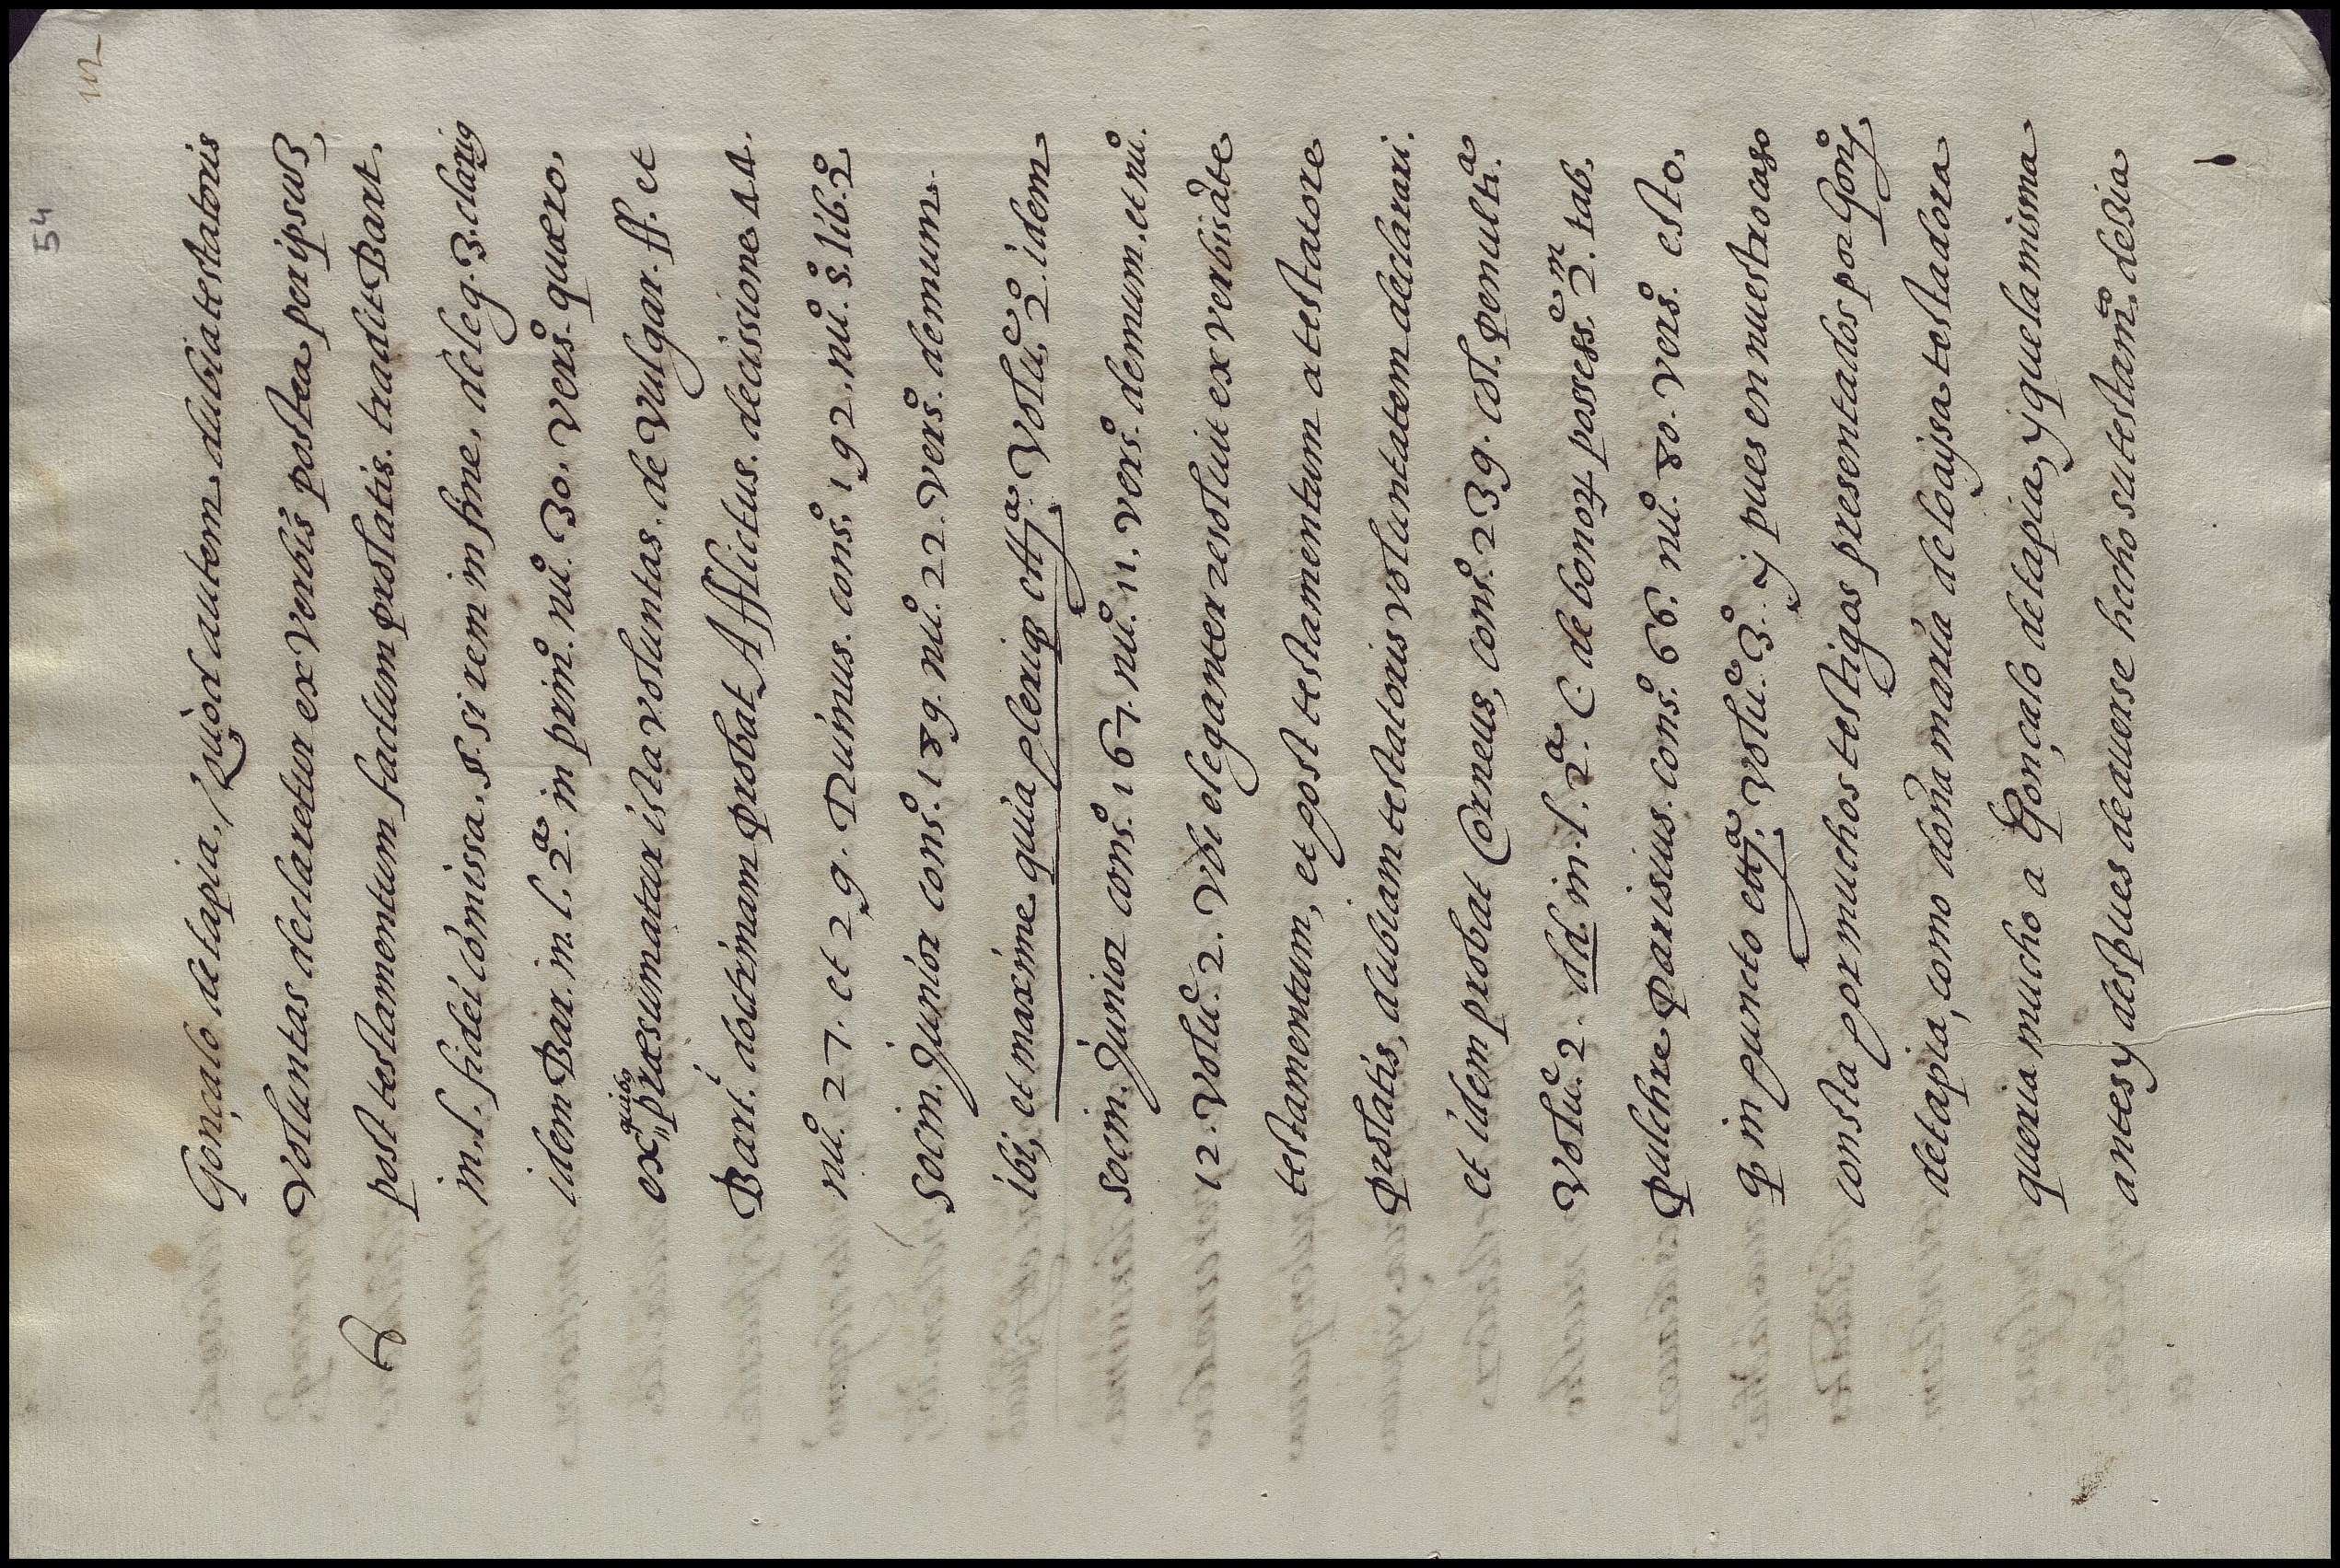 54
112
Gonçalo de tapia. Quòd autem. dubia testatoris
Voluntas declaretur ex verbis postea per ipsuȝ
post testamentum factum prolatis. tradit Bart.
in. l. fidei comissa. §. si rem in fine. de leg. 3. clariꝰ
idem Bar. in. l. 2.ª in prim.º nu.º 30. vers.º quæro.
ex quibꝰ præsumatur ista voluntas. de Vulgar. ff. et
Bart.i doctrinam probat Afflictus. decissione 44.
nu.º 27. et 29. Ruinus. cons.º 192. nu.º 5. lib. 2.º
Socin. Junior cons.º 189. nu.º 22. vers.º demum.
ibi, et maxime quia plerиqȝ ett.ª volu.e 2.º idem
Socin. Junior cons.º 167. nu.º 11. vers.º demum. et nu.º
12. volu.e 2. Vbi eleganter resoluit ex verbis ante
testamentum, et post testamentum a testatore
prolatis, dubiam testatoris voluntatem declarari.
et idem probat Corneus, cons.º 239. col. penulti.ª
Volu.e 2. ald. in. l. 2.ª C. de bonoꝝ possess.e 2.m tab.
pulchre parisius. cons.º 66. nu.º 80. vers.º esto.
qȝ in puncto ett.ª volu.e 3.º y pues en nuestro caso
consta por muchos testigos presentados por Gon.º
de tapia, como doña maria de loaysa testadora
queria mucho a Gonçalo de tapia, y que la misma
antes y despues de auerse hecho su testam.to deçia